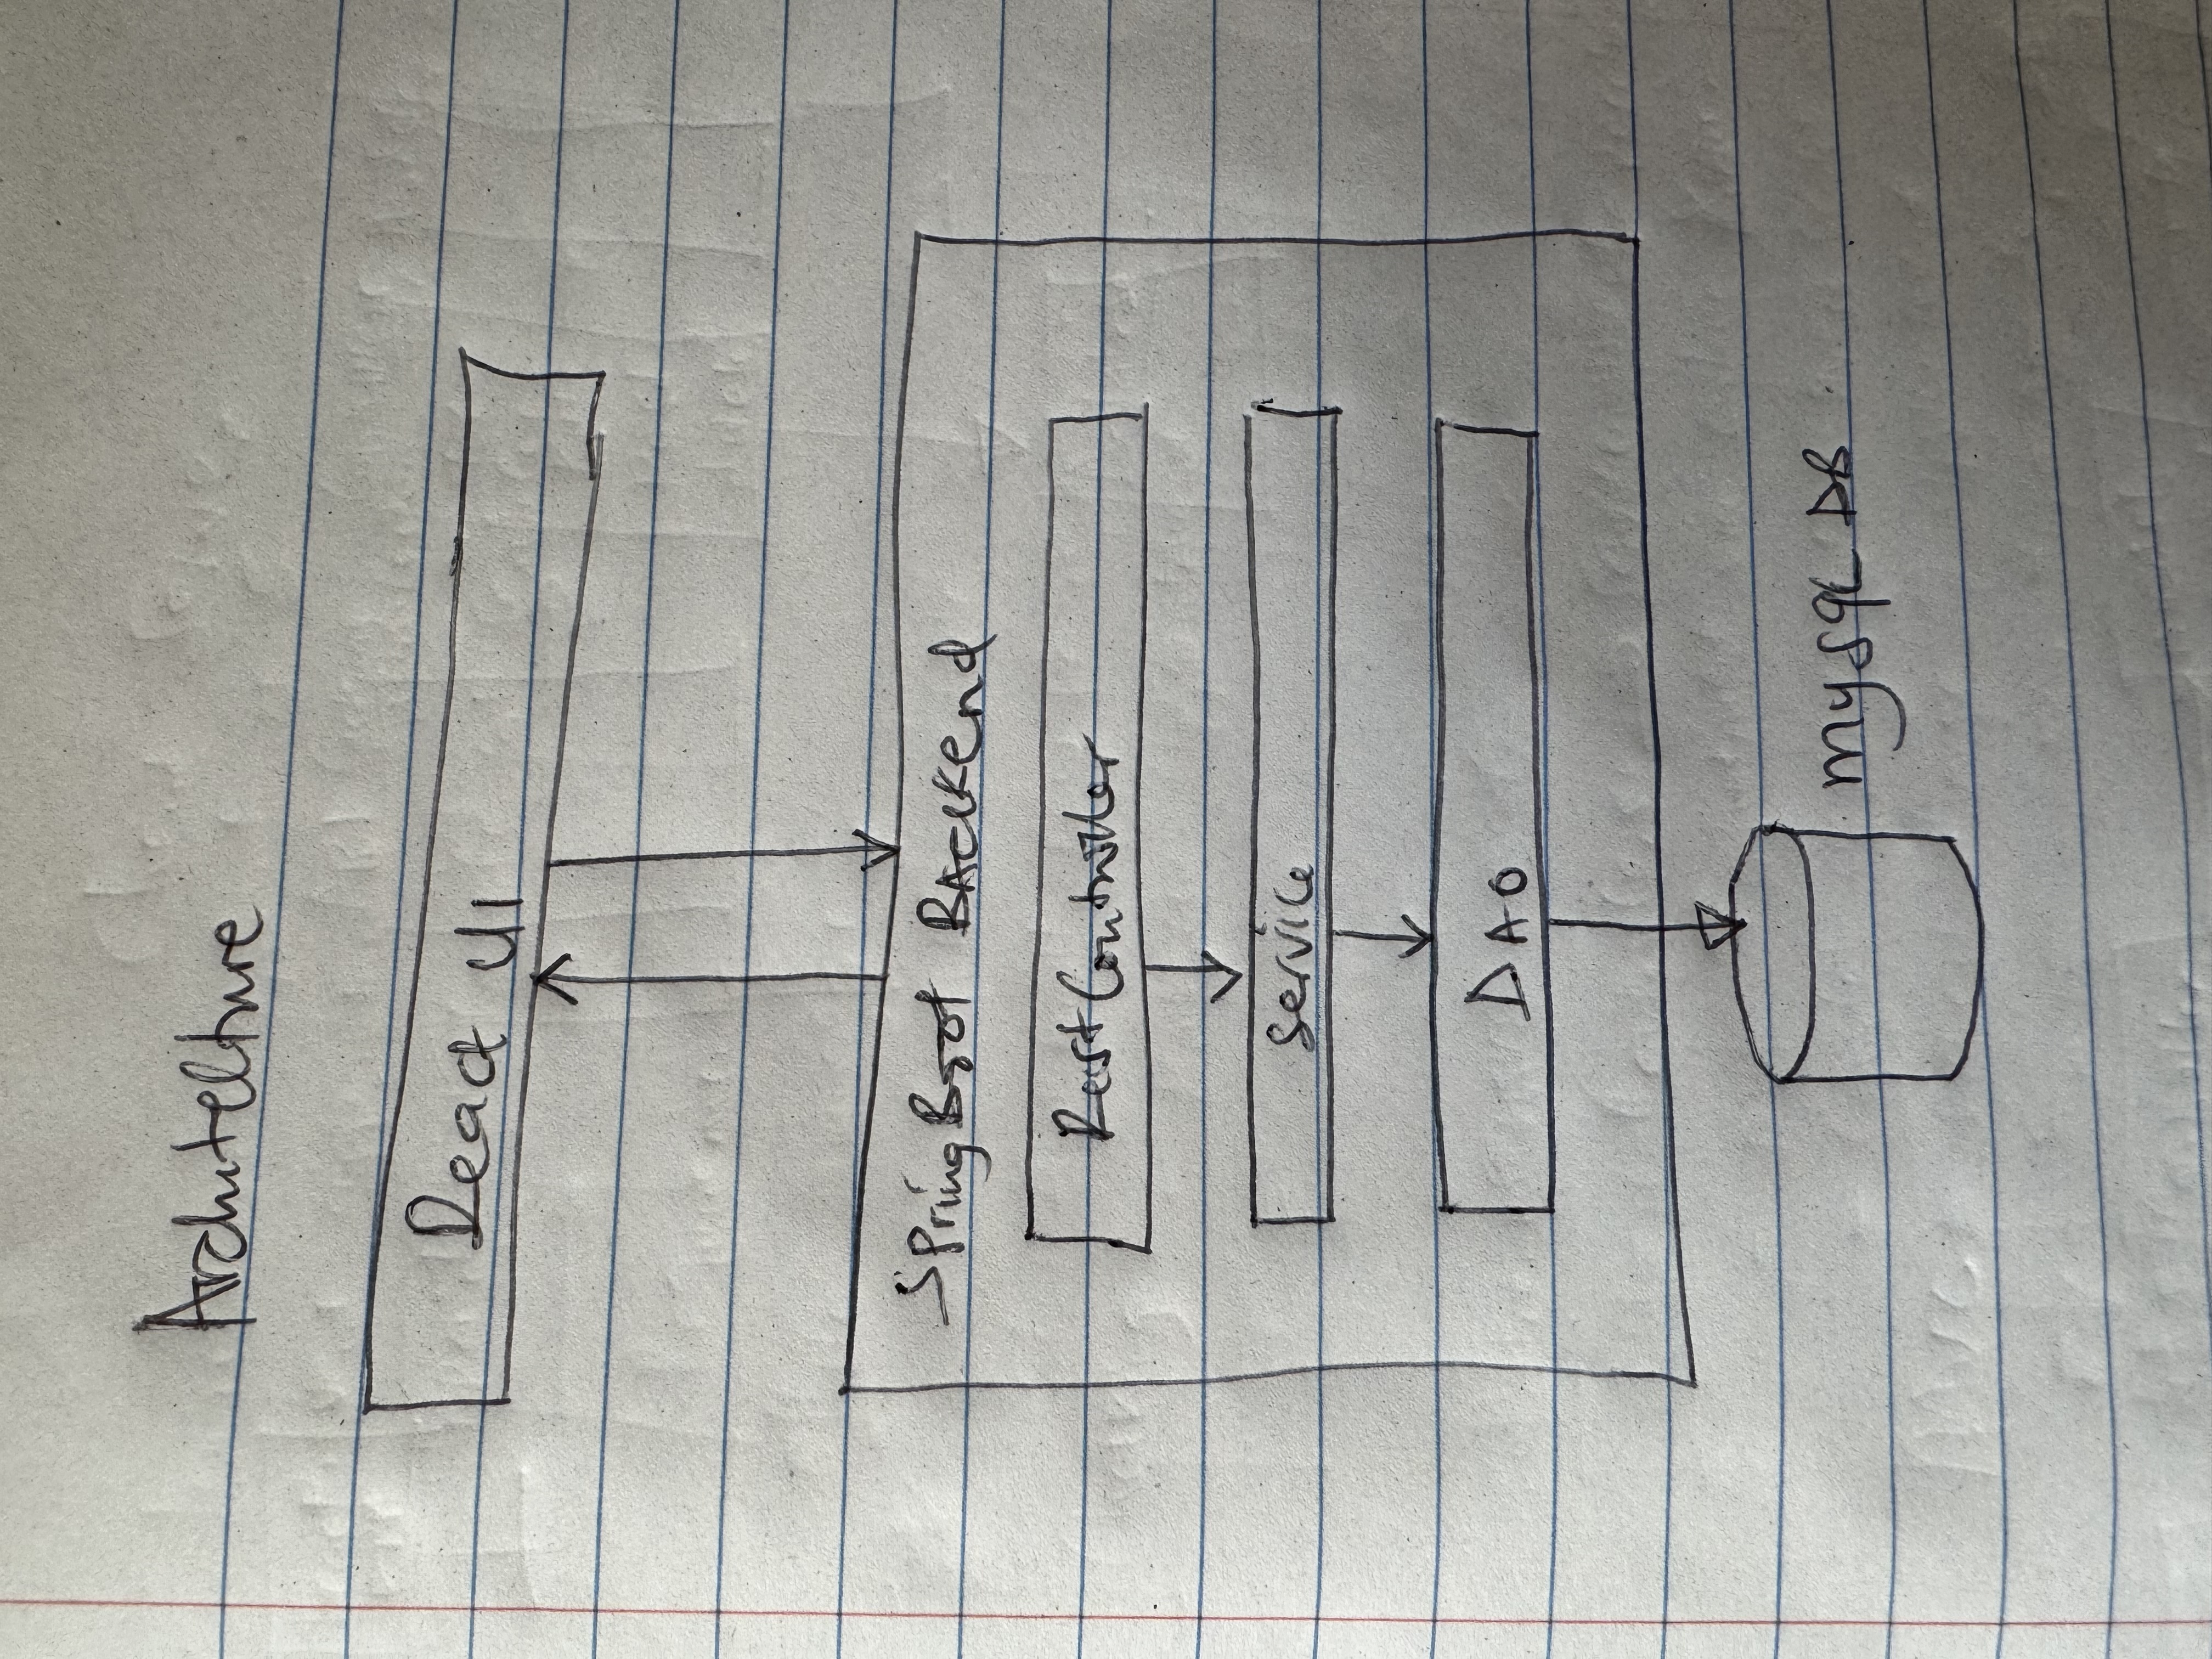 Architecture
React UI
SpringBoot Backend
RestController
Service
DAO
mysqL DB